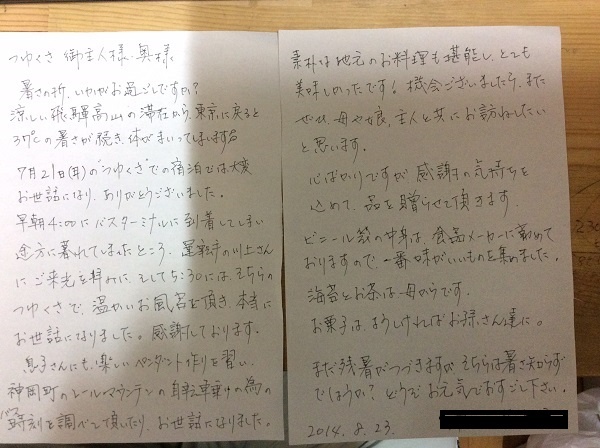 つゆくさ 御主人様・奥様
暑さの折、いかがお過ごしですか?
涼しい飛騨高山の滞在から、東京に戻ると
37℃の暑さが続き、体がまいってしまいます。
7月21日(月)の"つゆくさ"での宿泊では大変
お世話になり、ありがとうございました。
早朝4:00にバスターミナルに到着してしまい
途方に暮れていましたところ、運転手の川上さん
にご来光を拝みに、そして5:30には、そちらの
つゆくさで、温かいお風呂を頂き、本当に
お世話になりました。感謝しております。
息子さんにも、楽しいペンダント作りを習い、
神岡町のレールマウンテンの自転車乗りの為の
バス時刻を調べて頂いたり、お世話になりました。
素朴な地元のお料理も堪能し、とても
美味しかったです!機会ございましたら、また
ぜひ、母や娘、主人と共にお訪ねしたい
と思います。
心ばかりですが、感謝の気持ちを
込めて、品を贈らせて頂きます。
ビニール袋の中身は、食品メーカーに勤めて
おりますので、一番味がいいものを集めました。
海苔とお茶は母からです。
お菓子は、よろしければお孫さん達に。
まだ残暑がつづきますが、そちらは暑さ知らず
でしょうか?どうぞお元気でおすごし下さい。
2014.8.23.